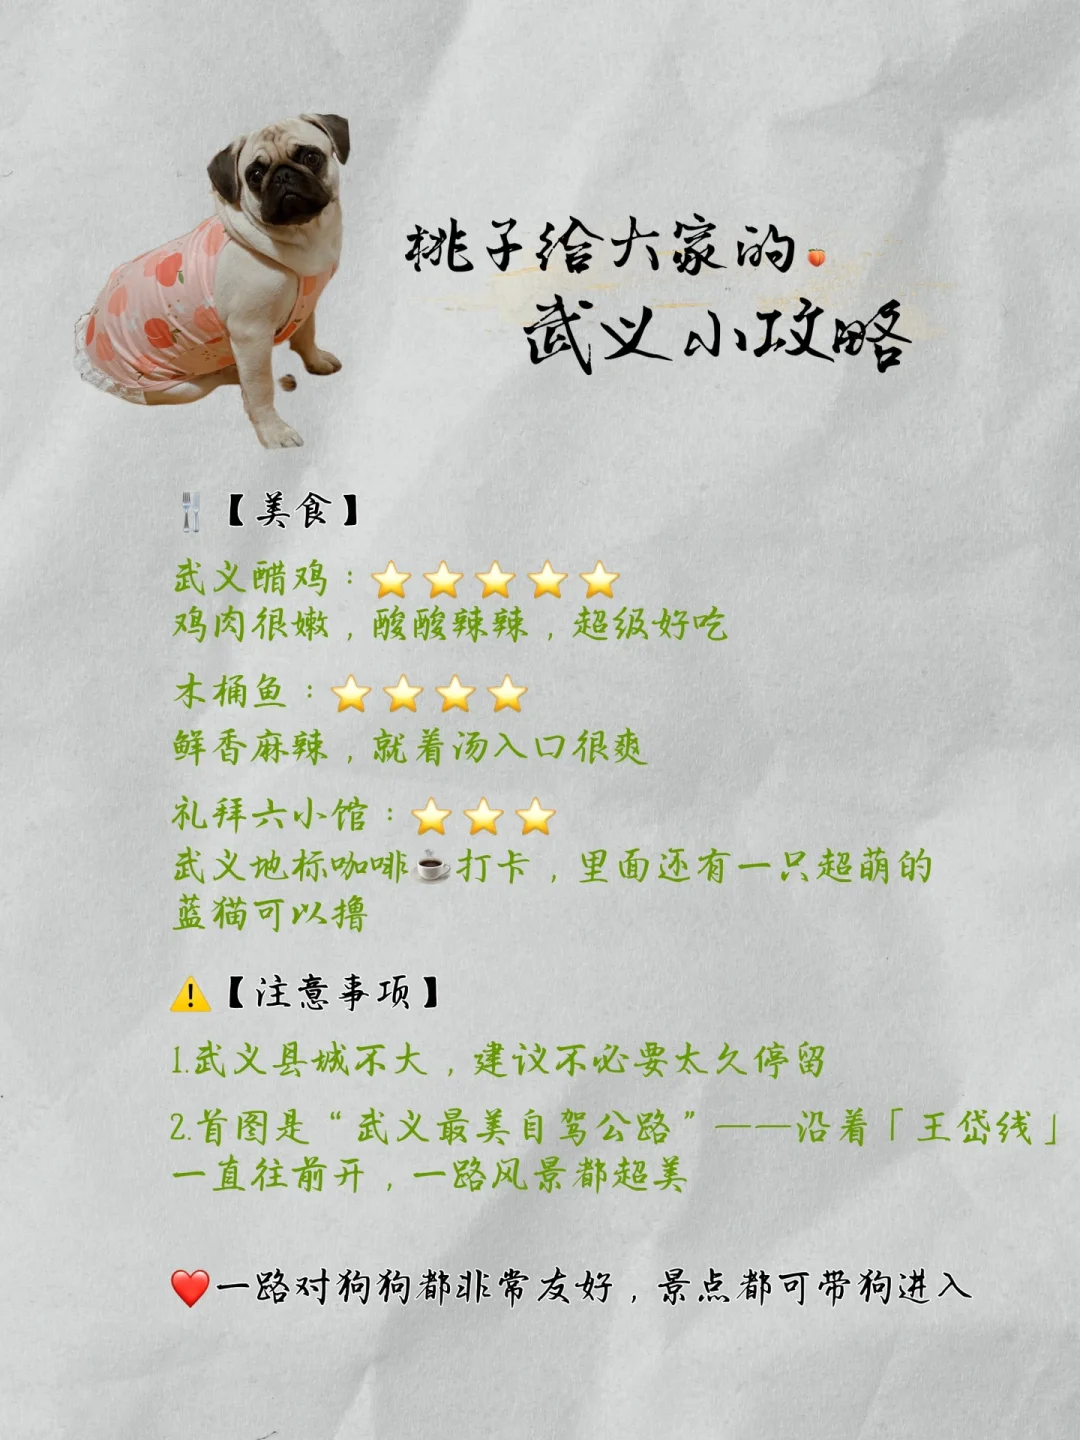 桃子给大家的🍑
武义小攻略
🍴【美食】
武义醋鸡：⭐⭐⭐⭐⭐
鸡肉很嫩，酸酸辣辣，超级好吃
木桶鱼：⭐⭐⭐⭐
鲜香麻辣，就着汤入口很爽
礼拜六小馆：⭐⭐⭐
武义地标咖啡☕打卡，里面还有一只超萌的
蓝猫可以撸
⚠️【注意事项】
1.武义县城不大，建议不必要太久停留
2.首图是“武义最美自驾公路”——沿着「王岱线」
一直往前开，一路风景都超美
❤️一路对狗狗都非常友好，景点都可带狗进入